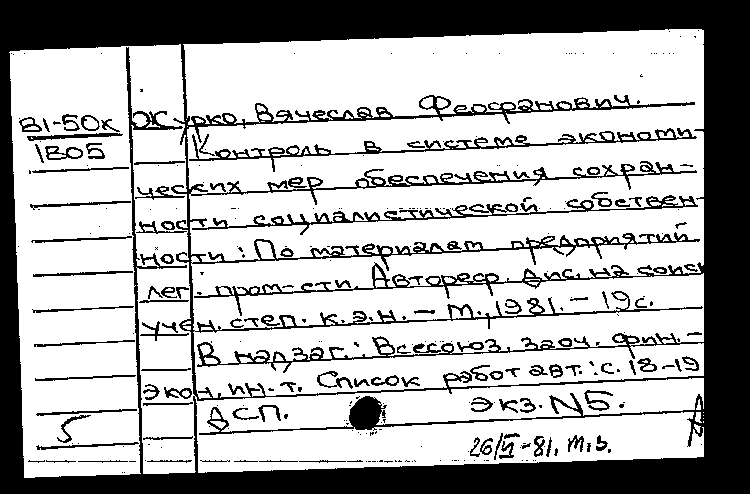 81-50к
1805
Журко, Вячеслав Феофанович.
Контроль в системе экономи-
ческих мер обеспечения сохран-
ности социалистической собствен-
ности: По материалам предприятий
лег. пром-сти. Автореф. дис. на соиск
учен. степ. к.э.н. — М., 1981. — 19с.
В надзаг.: Всесоюз. заоч. фин.-
экон. ин-т. Список работ авт.: с. 18-19
ДСП. экз. №5.
5
26/VI-81. т.з.